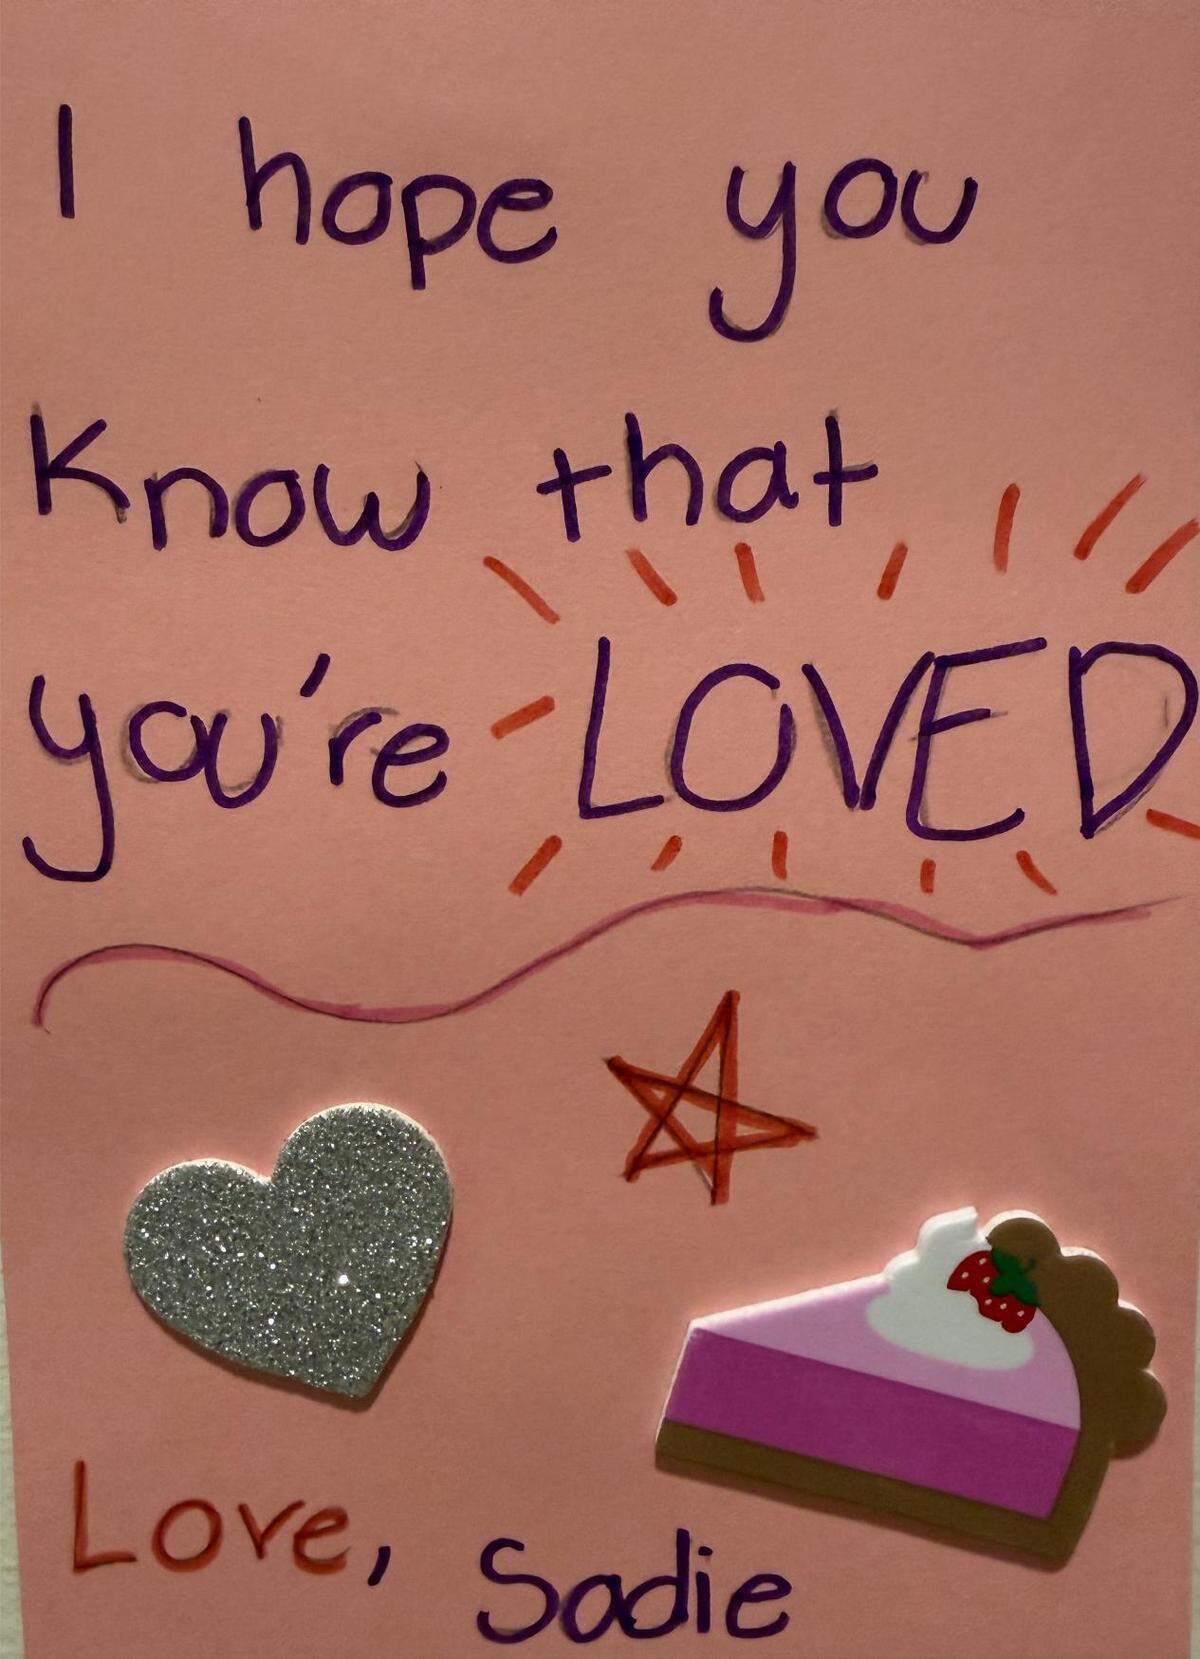 I hope you
know that
you're LOVED
Love, Sadie